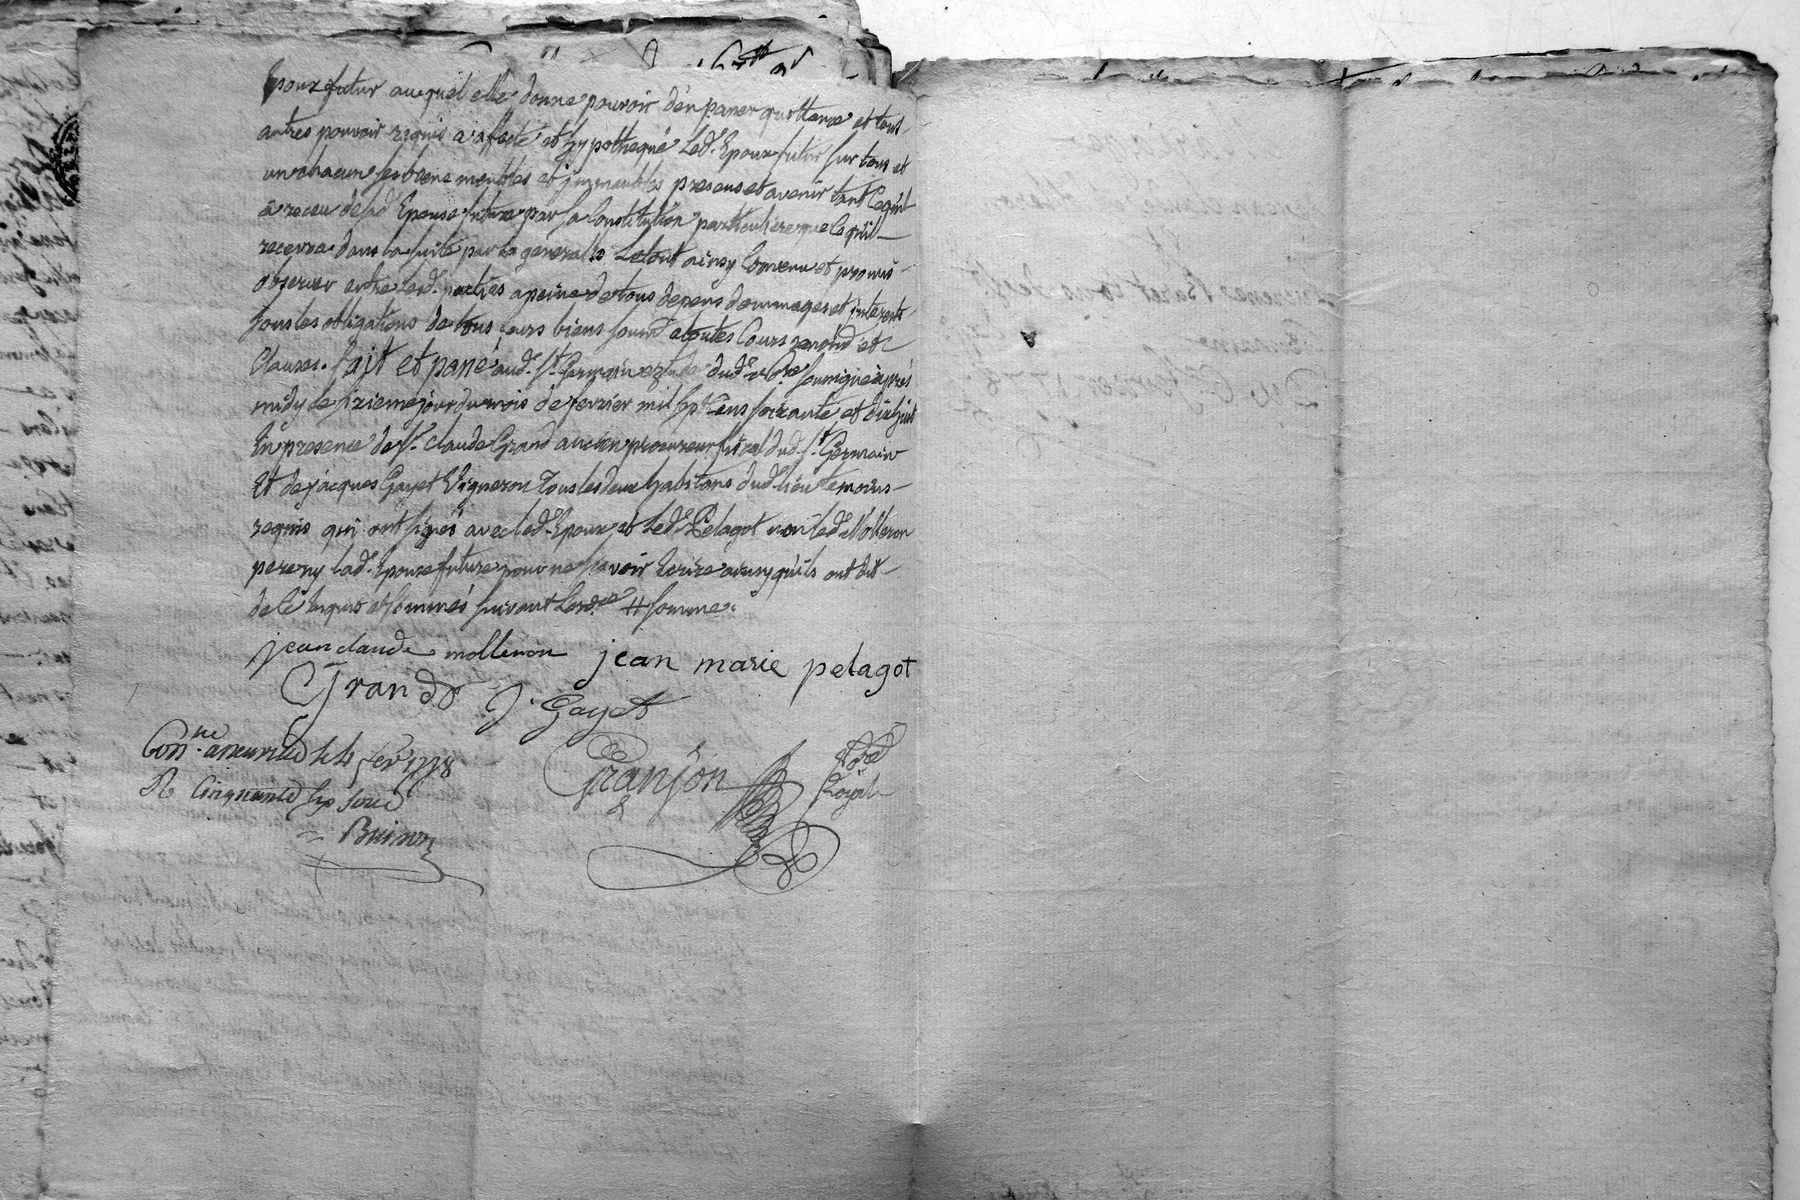 Epoux futur auquel elle donne pouvoir d'en passer quittance et tout
autres pouvoir requis a affecté et hypothequé led. Epoux futur sur tous et
un chacun ses biens meubles et immeubles presens et avenir tant ce qu'il
a receu de lad Epouse future par sa Constitution particuliere que ce qu'il
recevra dans la suite par la generalle Le tout ainsy Convenu et promis
observer entre lesd. parties a peine de tous depens dommages et interests
sous les obligations de tous leurs biens soumis a toutes Cours renond et
Clauses. fait et passé aud. St. Germain dud. no.re soussigné après
midy le sixieme jour du mois de fevrier mil sept cens soixante et dixhuit
En presence de Sr. Claude Grand ancien procureur fiscal dud. St. Germain
Et de jacques Gayet Vigneron Tous les deux habitans dud. lieu temoins
requis qui ont signés avec led. Epoux et led. Pelagot non led. Molleron
pere ny lad. Epouse future pour ne scavoir Ecrire ainsy qu'ils ont dit
de ce Enquis et sommés suivant Lord.ce # somme.
jean claude molleron jean marie pelagot
Grand J. Gayet
Con.lle a le 14 fevr 1778
R Cinquante sept sous
Granjon No.re Royal